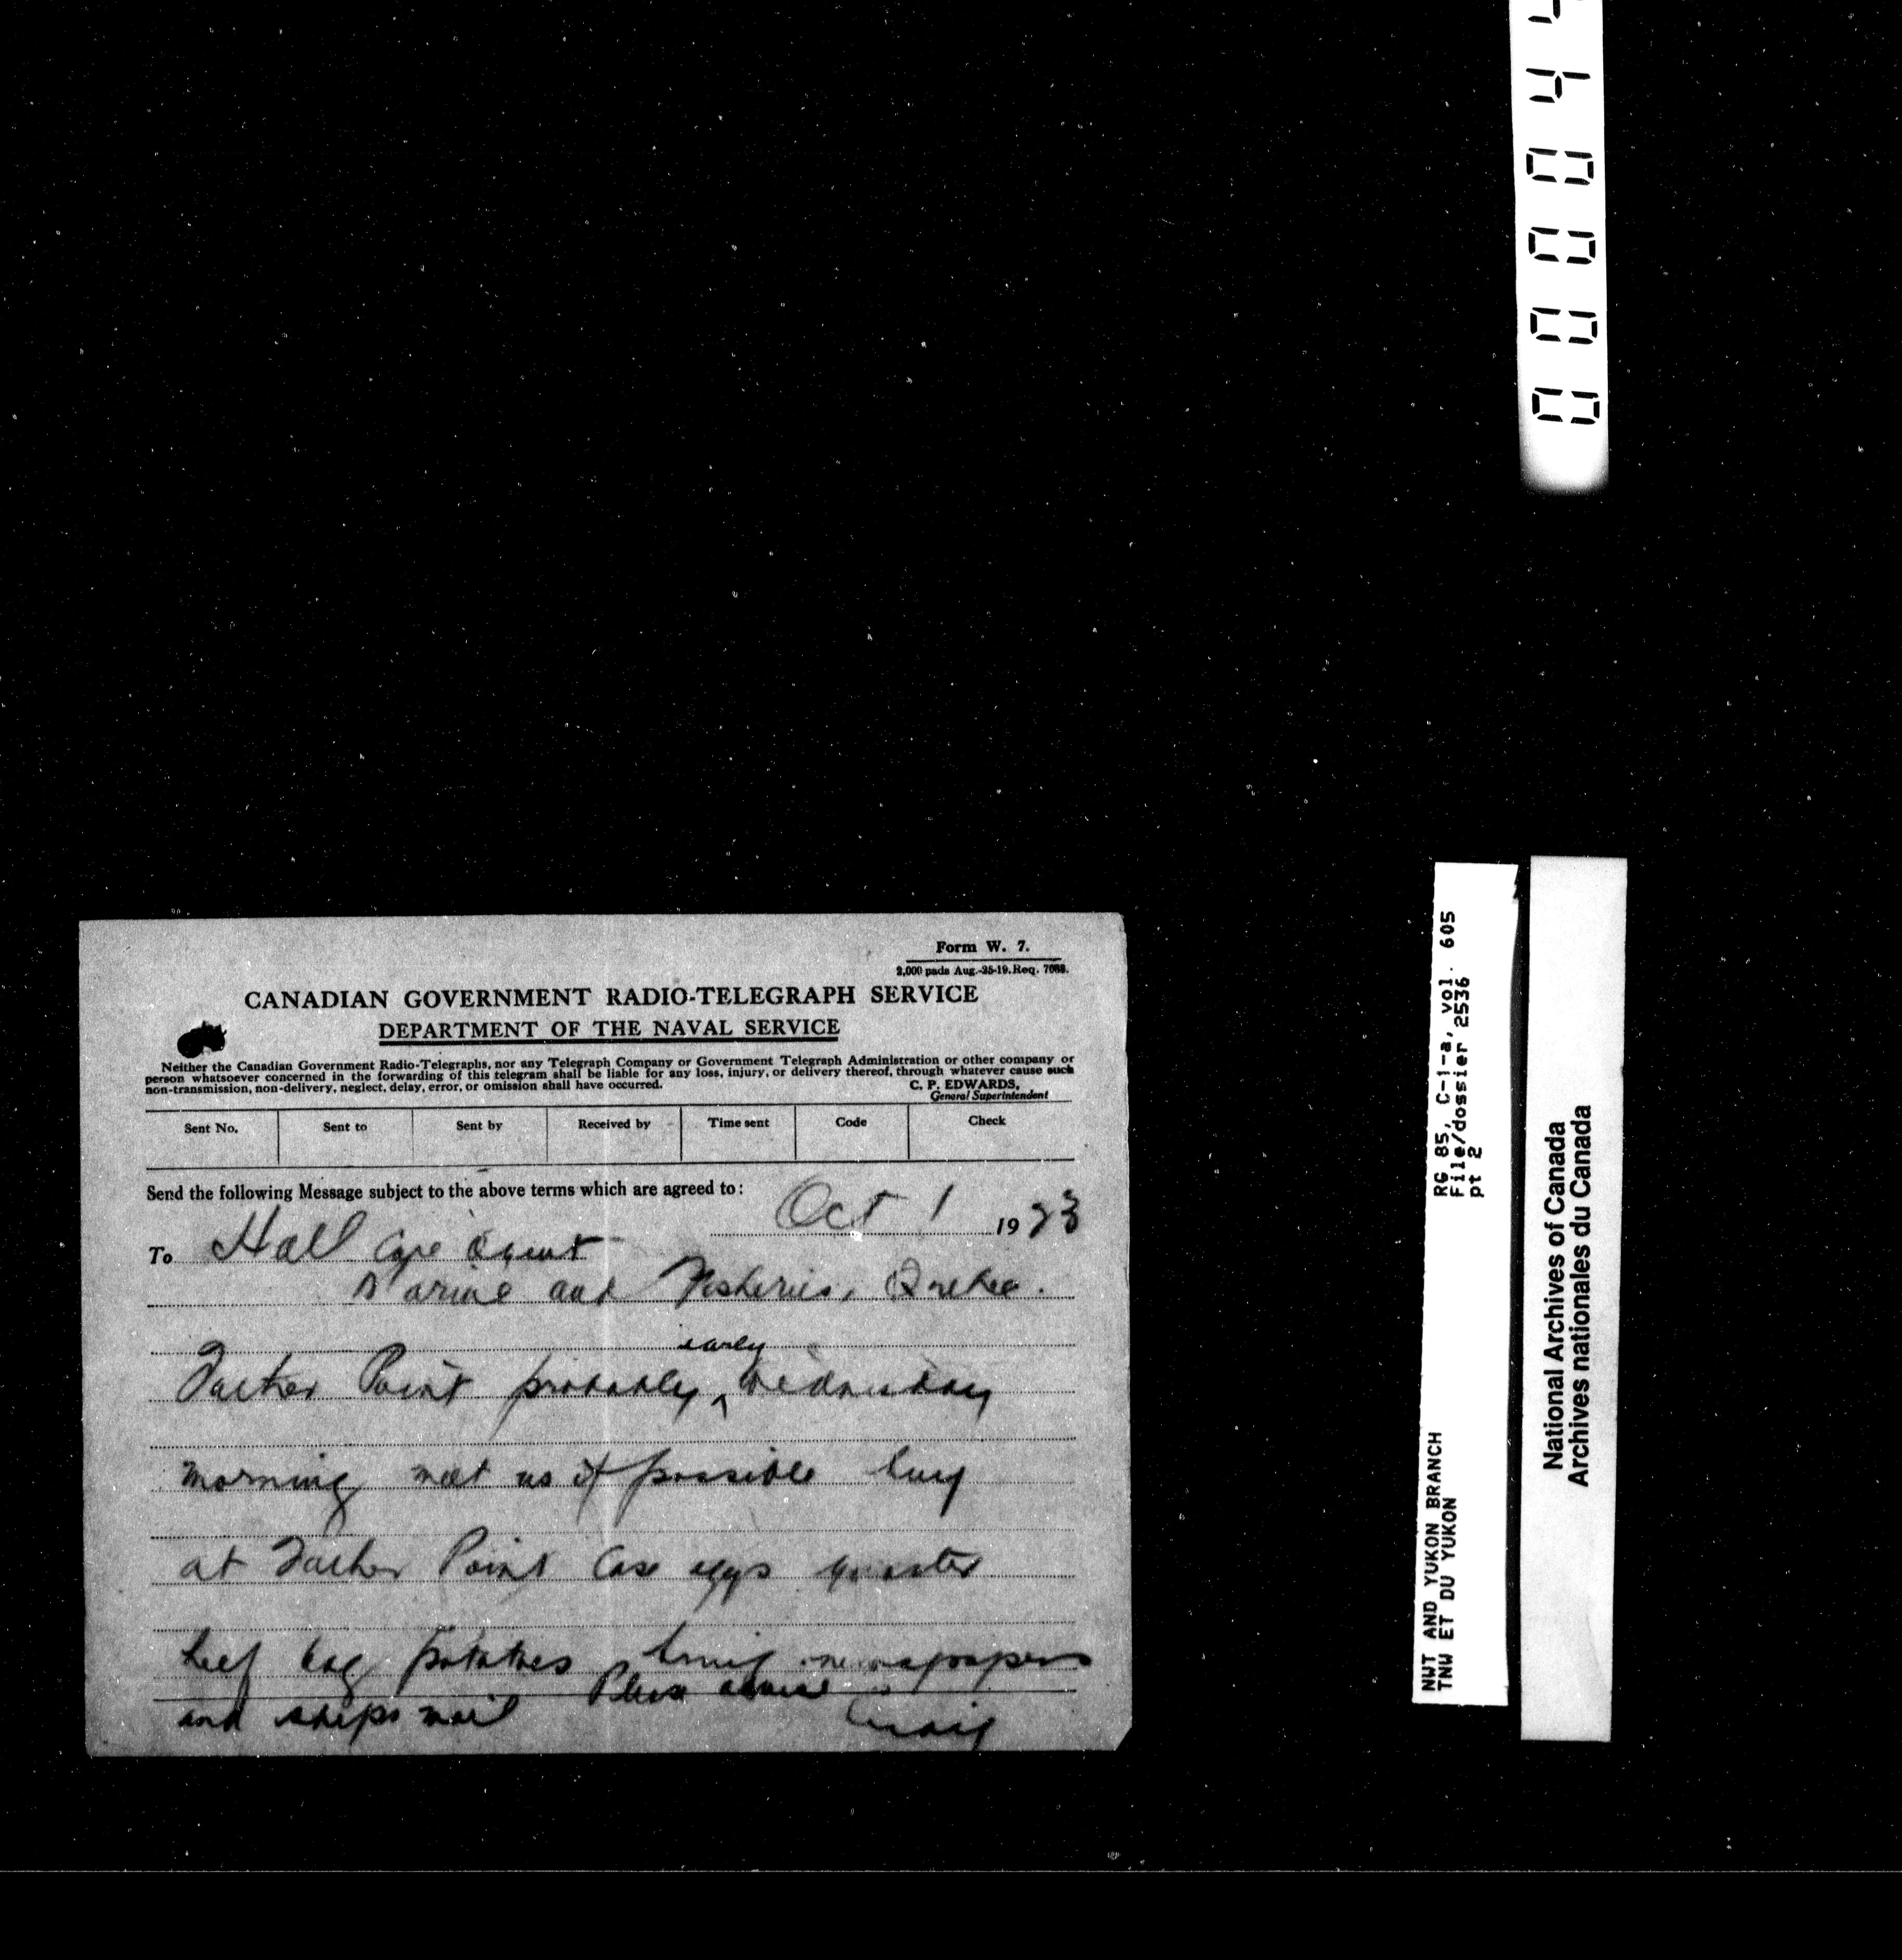 Form W. 7.
2,000 pads Aug.-25-19. Req. 7088.
CANADIAN GOVERNMENT RADIO-TELEGRAPH SERVICE
DEPARTMENT OF THE NAVAL SERVICE
Neither the Canadian Government Radio-Telegraphs, nor any Telegraph Company or Government Telegraph Administration or other company or
person whatsoever concerned in the forwarding of this telegram shall be liable for any loss, injury, or delivery thereof, through whatever cause such
non-transmission, non-delivery, neglect, delay, error, or omission shall have occurred.
C. P. EDWARDS,
General Superintendent
Sent No. Sent to Sent by Received by Time sent Code Check
Send the following Message subject to the above terms which are agreed to:
Oct 1 1923
To Hall Care Agent
Marine and Fisheries, Quebec.
Father Point probably early Wednesday
morning meet us if possible buy
at Father Point case eggs quarter
beef bag potatoes bring newspapers
and ships mail Please advise
Craig
RG 85, C-1-a, vol. 605
File/dossier 2536
pt 2
NWT AND YUKON BRANCH
TNW ET DU YUKON
National Archives of Canada
Archives nationales du Canada